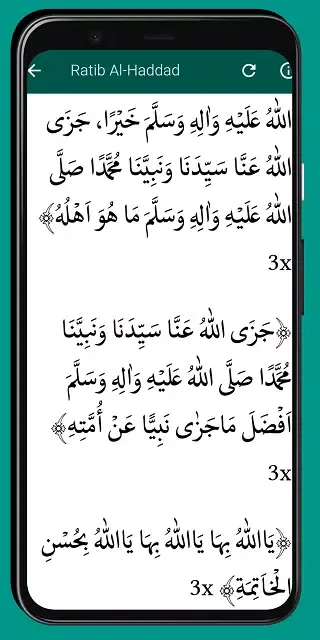 Ratib Al-Haddad
اللهُ عَلَيْهِ وَاٰلِهِ وَسَلَّمَ خَيْرًا، جَزَى
اللهُ عَنَّا سَيِّدَنَا وَنَبِيَّنَا مُحَمَّدًا صَلَّى
اللهُ عَلَيْهِ وَاٰلِهِ وَسَلَّمَ مَا هُوَ اَهْلُهُ﴾
3x
﴿جَزَى اللهُ عَنَّا سَيِّدَنَا وَنَبِيَّنَا
مُحَمَّدًا صَلَّى اللهُ عَلَيْهِ وَاٰلِهِ وَسَلَّمَ
اَفْضَلَ مَاجَزٰى نَبِيًّا عَنْ أُمَّتِهِ﴾
3x
﴿يَااَللهُ بِهَا يَااَللهُ بِهَا يَااَللهُ بِحُسْنِ
الْخَاتِمَةِ﴾ 3x